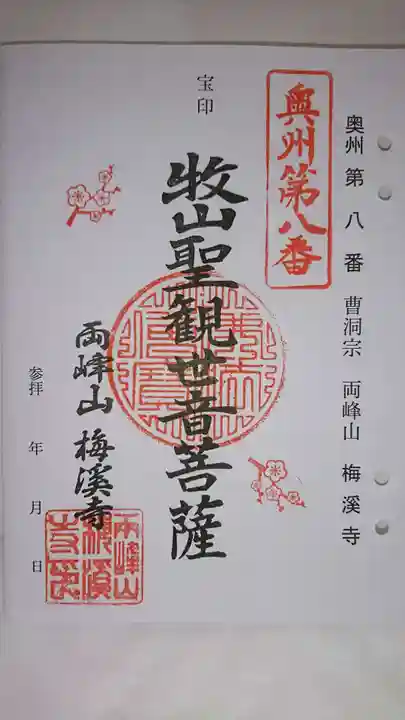 奥州第八番 曹洞宗 両峰山 梅溪寺
奥州第八番
宝印
牧山聖観世音菩薩
両峰山 梅溪寺
両峰山梅溪寺印
参拝 年 月 日